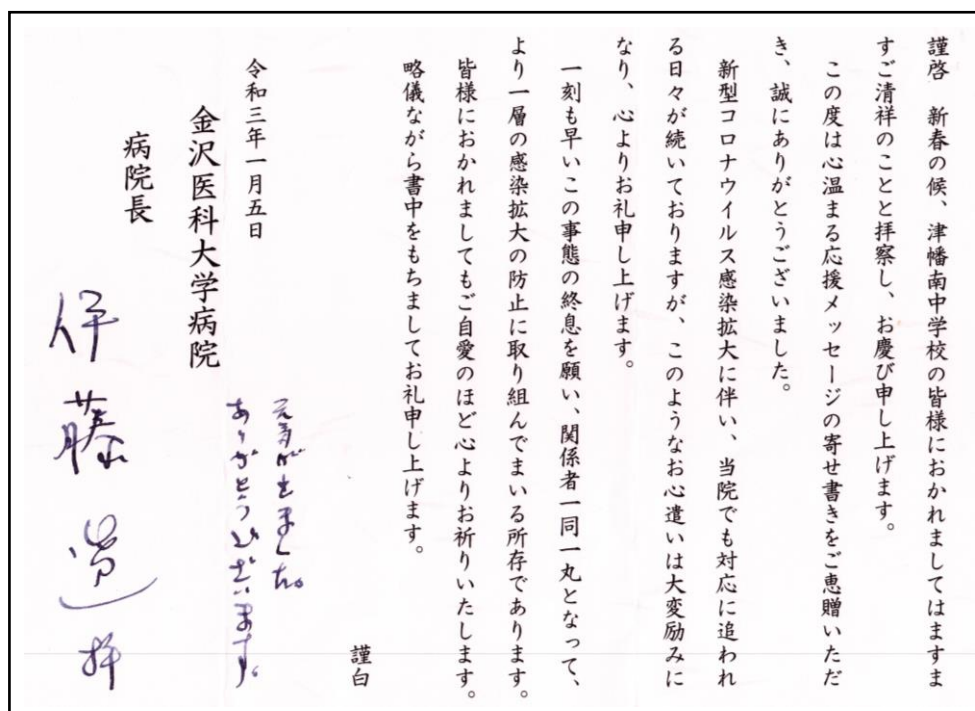 謹啓　新春の候、津幡南中学校の皆様におかれましてはますま
すご清祥のことと拝察し、お慶び申し上げます。
この度は心温まる応援メッセージの寄せ書きをご恵贈いただ
き、誠にありがとうございました。
新型コロナウイルス感染拡大に伴い、当院でも対応に追われ
る日々が続いておりますが、このようなお心遣いは大変励みに
なり、心よりお礼申し上げます。
一刻も早いこの事態の終息を願い、関係者一同一丸となって、
より一層の感染拡大の防止に取り組んでまいる所存であります。
皆様におかれましてもご自愛のほど心よりお祈りいたします。
略儀ながら書中をもちましてお礼申し上げます。
謹白
令和三年一月五日
金沢医科大学病院
病院長
伊藤 透 拝
元気がでました。
ありがとうございます。